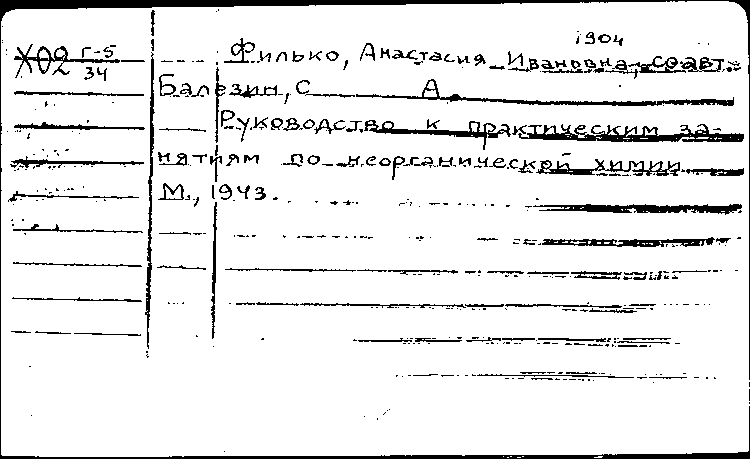 1904
Х02 Г-5
34
Филько, Анастасия Ивановна, соавт.
Балезин, С А.
Руководство к практическим за-
нятиям по неорганической химии
М., 1943.